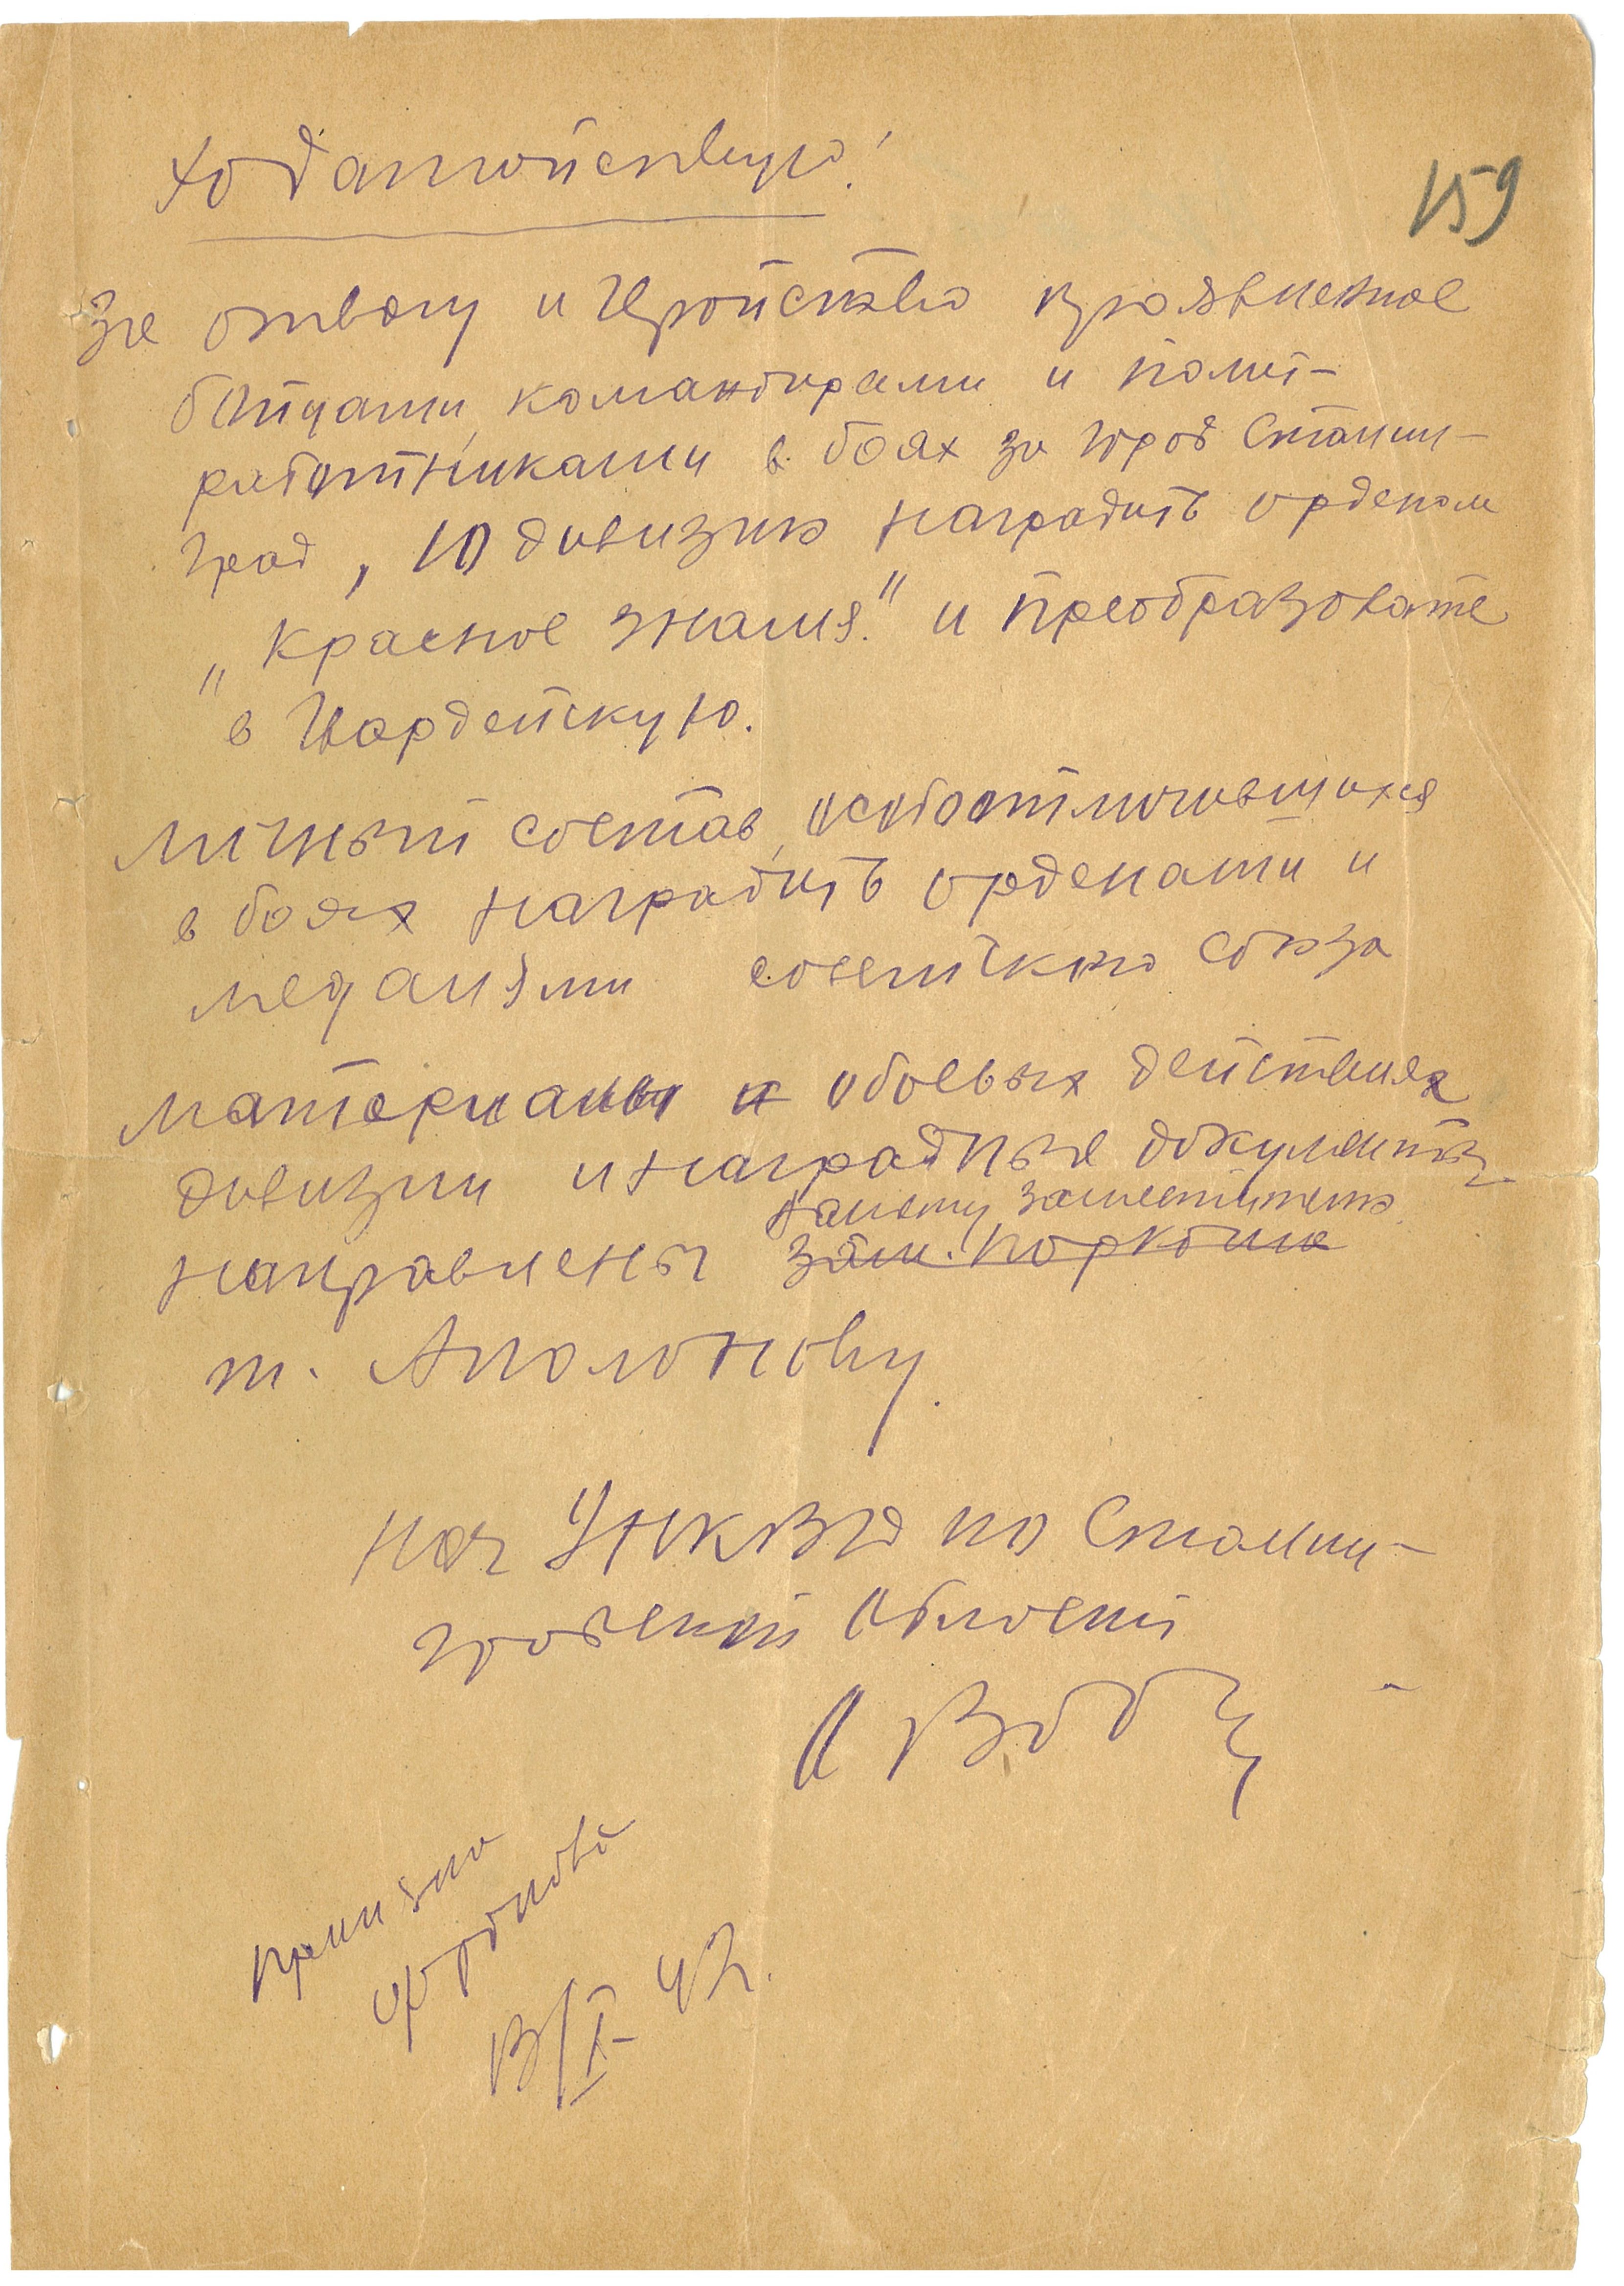 159
Ходатайствую!
За отвагу и геройство проявленное
бойцами, командирами и полит-
работниками в боях за город Сталин-
град, 10 дивизию наградить орденом
„Красное знамя." и преобразовать
в Гвардейскую.
Личный состав, особоотличившихся
в боях наградить орденами и
медалями советского союза
Материалы и о боевых действиях
дивизии и наградные документы
Вашему заместителю
направлены зам. Наркома
т. Аполонову.
Нач УНКВД по Сталин-
градской области